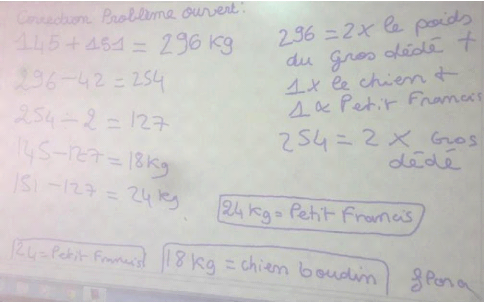 Correction Problème ouvert:
145 + 151 = 296 kg
296 - 42 = 254
254 ÷ 2 = 127
145 - 127 = 18 kg
151 - 127 = 24 kg
296 = 2 x le poids
du Gros dédé +
1 x le chien +
1 x Petit Francis
254 = 2 x Gros
dédé
24 kg = Petit Francis
24 = Petit Francis
18 kg = chien boudin